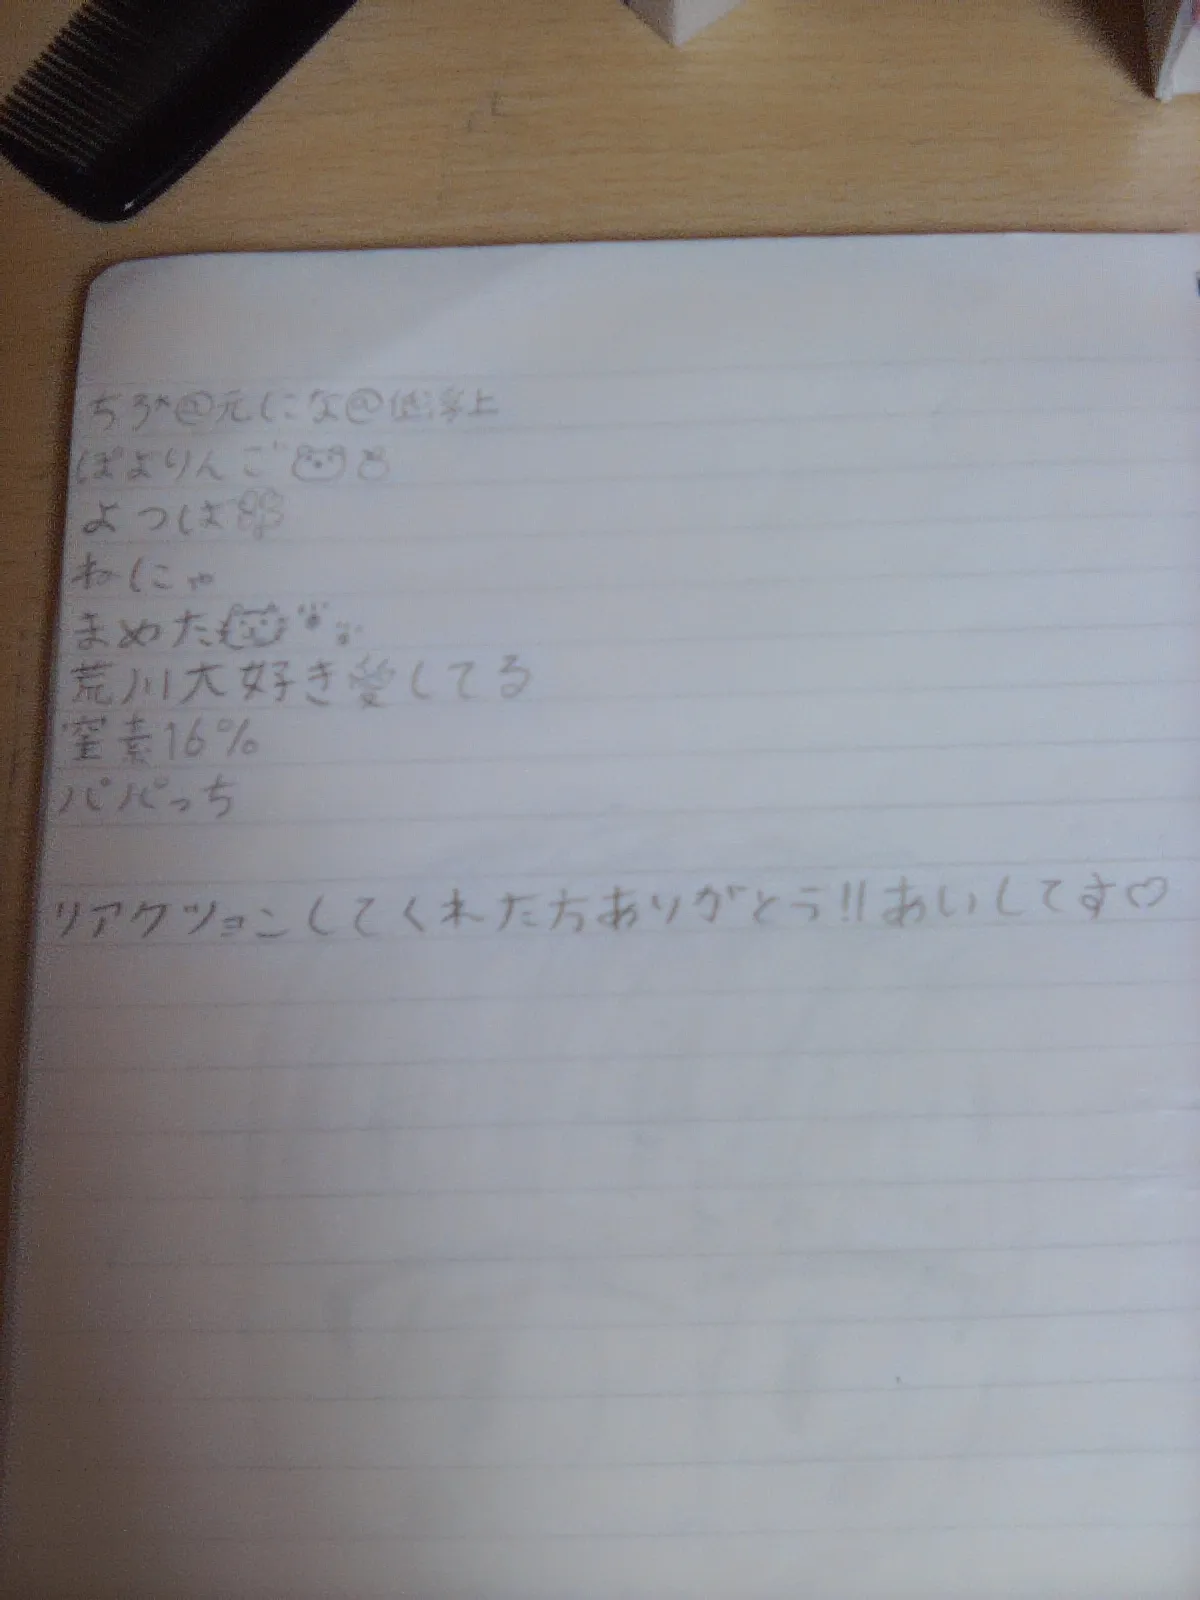 ちろ*@元にな@低浮上
ぽよりんご
よつば
ねにゃ
まめた
荒川大好き愛してる
窒素16%
パパっち
リアクションしてくれた方ありがとう!!あいしてす♡